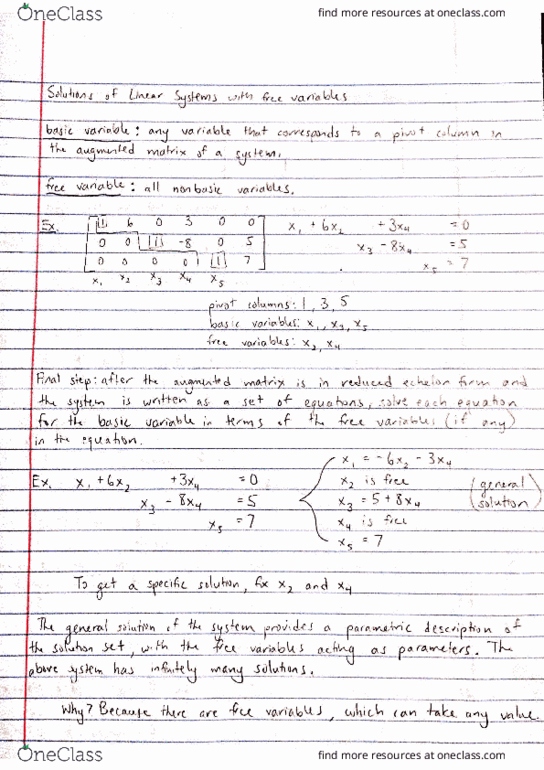 OneClass find more resources at oneclass.com
Solutions of Linear Systems with free variables
basic variable: any variable that corresponds to a pivot column in
the augmented matrix of a system.
free variable: all nonbasic variables.
Ex. 1 6 0 3 0 0 x₁ + 6x₂ + 3x₄ = 0
0 0 1 -8 0 5 x₃ - 8x₄ = 5
0 0 0 0 1 7 x₅ = 7
x₁ x₂ x₃ x₄ x₅
pivot columns: 1, 3, 5
basic variables: x₁, x₃, x₅
free variables: x₂, x₄
Final step: after the augmented matrix is in reduced echelon form and
the system is written as a set of equations, solve each equation
for the basic variable in terms of the free variables (if any)
in the equation.
Ex. x₁ + 6x₂ + 3x₄ = 0
x₃ - 8x₄ = 5
x₅ = 7
x₁ = -6x₂ - 3x₄
x₂ is free
x₃ = 5 + 8x₄
x₄ is free
x₅ = 7
(general
solution)
To get a specific solution, fix x₂ and x₄
The general solution of the system provides a parametric description of
the solution set, with the free variables acting as parameters. The
above system has infinitely many solutions.
Why? Because there are free variables, which can take any value.
OneClass find more resources at oneclass.com